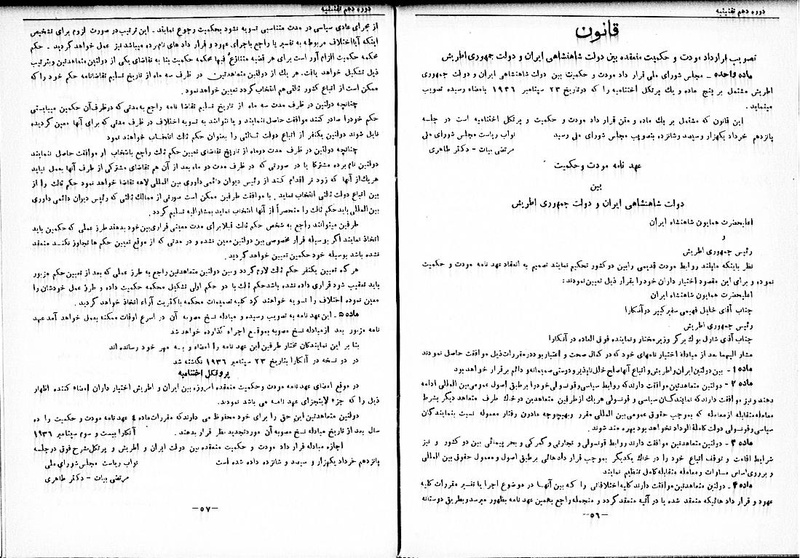 دوره دهم تقنینیه
قانون
تصویب قرارداد مودت و حکمیت منعقده بین دولت شاهنشاهی ایران و دولت جمهوری اطریش
ماده واحده - مجلس شورای ملی قرار داد مودت و حکمیت بین دولت شاهنشاهی ایران و دولت جمهوری
اطریش مشتمل بر پنج ماده و یك پرتکل اختتامیه را که در تاریخ ۲۳ سپتامبر ۱۹۳۶ بامضاء رسیده تصویب
مینماید.
این قانون که مشتمل بر یك ماده و متن قرار داد مودت و حکمیت و پرتکل اختتامیه است در جلسه
پانزدهم خرداد یکهزار و سیصد و شانزده بتصویب مجلس شورای ملی رسید
نواب ریاست مجلس شورای ملی
مرتضی بیات - دکتر طاهری
عهد نامه مودت و حکمیت
بین
دولت شاهنشاهی ایران و دولت جمهوری اطریش
اعلیحضرت همایون شاهنشاه ایران
و
رئیس جمهوری اطریش
نظر باینکه مایلند روابط مودت قدیمی را بین دو کشور تحکیم نمایند تصمیم به انعقاد عهد نامه مودت و حکمیت
نموده و برای این مقصود اختیار داران خود را بقرار ذیل تعیین نمودند:
اعلیحضرت همایون شاهنشاه ایران
جناب آقای خلیل فهیمی سفیر کبیر در آنکارا
رئیس جمهوری اطریش
جناب آقای شارل بوك برگر وزیر مختار و نماینده فوق العاده در آنکارا
مشار الیهما بعد از مبادله اختیار نامهای خود که در کمال صحت و اعتبار بود در مقررات ذیل موافقت حاصل نمودند
ماده ۱ - بین دولتین ایران و اطریش و اتباع آنها صلح خلل ناپذیر و دوستی صمیمانه و دائم برقرار خواهد بود
ماده ۲ - دولتین متعاهدتین موافقت دارند که روابط سیاسی و قونسولی خود را بر طبق اصول عمومی بین المللی ادامه
دهند و نیز موافقت دارند که نمایندگان سیاسی و قونسولی هر یك از طرفین متعاهدین در خاك طرف متعاهد دیگر بشرط
معامله متقابله از معامله که بموجب حقوق عمومی بین المللی مقرر و بهیچوجه مادون رفتار معموله نسبت بنمایندگان
سیاسی و قونسولی دولت کاملة الوداد نخواهد بود بهره مند شوند.
ماده ۳ - دولتین متعاهدتین موافقت دارند روابط قونسولی و تجارتی و گمرکی و بحر پیمائی بین دو کشور و نیز
شرایط اقامت و توقف اتباع خود را در خاك یکدیگر بموجب قرار دادهائی بر طبق اصول و معمول حقوق بین المللی
و بر روی اساس مساوات و معامله متقابله کامل تنظیم نمایند
ماده ۴ - دولتین متعاهدتین موافقت دارند کلیه اختلافاتی را که بین آنها در موضوع اجرا یا تفسیر مقررات کلیه
عهود و قرار دادهائیکه منعقد شده یا در آتیه منعقد گردد و منجمله راجع بهمین عهد نامه بظهور میرسد و بطریق دوستانه
-۵۶-
دوره دهم تقنینیه
از مجرای عادی سیاسی در مدت متناسبی تسویه نشود بحکمیت رجوع نمایند. این ترتیب در صورت لزوم برای تشخیص
اینکه آیا اختلاف مربوط به تفسیر یا راجع باجرای عهود و قرار داد های نامبرده میباشد نیز عمل خواهد گردید. حکم
محکمه حکمیت الزام آور است برای هر قضیه متنازع فیها محکمه حکمیت بنا به تقاضای یکی از دولتین متعاهدتین و بترتیب
ذیل تشکیل خواهد یافت. هر یك از دولتین متعاهدتین در ظرف سه ماه از تاریخ تسلیم تقاضانامه حکم خود را که
ممکن است از اتباع کشور ثالثی هم انتخاب گردد تعیین خواهد نمود.
چنانچه دولتین در ظرف مدت سه ماه از تاریخ تسلیم تقاضا نامه راجع بمدتی که در ظرف آن حکمین میبایستی
حکم خود را صادر کنند موافقت حاصل ننمایند و یا نتوانند به تسویه اختلاف در ظرف مدتی که برای آنها معین گردیده
نایل شوند دولتین یکنفر از اتباع دولت ثالثی را بعنوان حکم ثالث انتخاب خواهند نمود
چنانچه دولتین در ظرف مدت دو ماه از تاریخ تقاضای تعیین حکم ثالث راجع بانتخاب او موافقت حاصل ننمایند
دولتین نامبرده مشترکا یا در صورتی که در ظرف مدت دو ماه بعد از آن هم تقاضای مشترکی از طرف آنها بعمل نیاید
هر یك از آنها که زود تر اقدام کنند از رئیس دیوان دائمی داوری بین المللی لاهه تقاضا خواهد نمود حکم ثالث را از
بین اتباع دولت ثالثی انتخاب نماید. با موافقت طرفین ممکن است صورتی از ممالك ثالثی که رئیس دیوان دائمی داوری
بین المللی باید حکم ثالث را منحصراً از آنها انتخاب نماید بمشارالیه تسلیم گردد.
طرفین میتوانند راجع به شخص حکم ثالث قبلا برای مدت معینی قراری بین خود بدهند طرز عملی که حکمین باید
اتخاذ نمایند اگر بوسیله قرار مخصوصی بین دولتین معین نشده و در مدتی که از موقع تعیین حکم ها تجاوز نکند منعقد
نشده باشد بوسیله خود حکمین تعیین خواهد گردید.
هر گاه تعیین یکنفر حکم ثالث لازم گردد و بین دولتین متعاهدتین راجع به طرز عملی که بعد از تعیین حکم مزبور
باید تعقیب شود قراری داده نشده باشد حکم ثالث با دو حکم اولی تشکیل محکمه حکمیت داده و طرز عمل خودشان را
معین نموده اختلاف را تسویه خواهند کرد کلیه تصمیمات محکمه با اکثریت آراء اتخاذ خواهد گردید.
ماده ۵ - این عهد نامه به تصویب رسیده و مبادله نسخ مصوبه آن در اسرع اوقات ممکنه بعمل خواهد آمد عهد
نامه مزبور بعد از مبادله نسخ مصوبه بموقع اجراء گذارده خواهد شد
بنا بر این نمایندگان مختار طرفین این عهد نامه را امضاء و به مهر خود رسانده اند
در دو نسخه در آنکارا بتاریخ ۲۳ سپتامبر ۱۹۳۶ نگاشته شد
پرتکل اختتامیه
در موقع امضای عهد نامه مودت و حکمیت منعقده امروزه بین ایران و اطریش اختیار داران امضاء کننده اظهار
ذیل را که جزء لایتجزای عهد نامه می باشد نمودند.
دولتین متعاهدتین این حق را برای خود محفوظ می دارند که مقررات ماده ۴ عهد نامه مودت و حکمیت را ده
سال بعد از تاریخ مبادله نسخ مصوبه آن مورد تجدید نظر قرار بدهند.
آنکارا بیست و سوم سپتامبر ۱۹۳۶
اجازه مبادله قرار داد مودت و حکمیت منعقده بین دولت ایران و اطریش و پرتکل بشرح فوق در جلسه
پانزدهم خرداد یکهزار و سیصد و شانزده داده شده است
نواب ریاست مجلس شورای ملی
مرتضی بیات - دکتر طاهری
-۵۷-